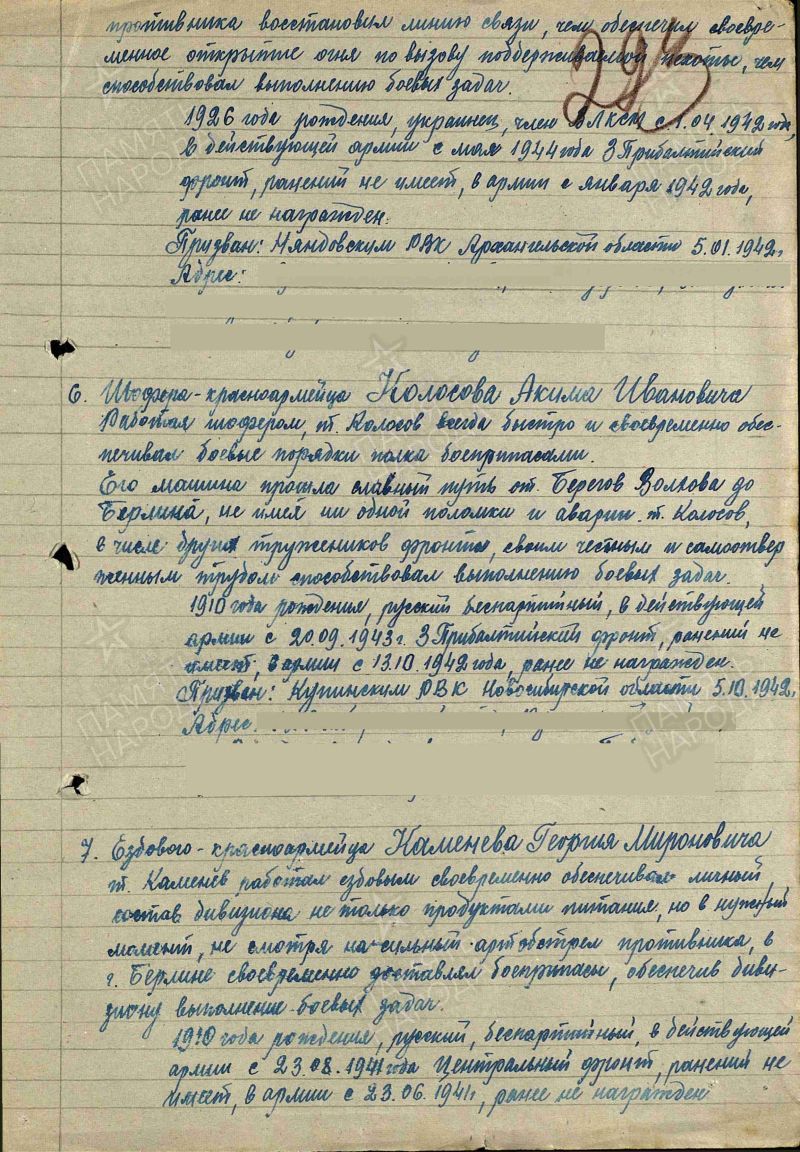 противника восстановил линию связи, чем обеспечил своевре-
менное открытие огня по вызову поддерживаемой пехоты, чем
293
способствовал выполнению боевых задач.
1926 года рождения, украинец, член ВЛКСМ с 1.04.1942 года,
в действующей армии с мая 1944 года 3 Прибалтийский
фронт, ранений не имеет, в армии с января 1942 года,
ранее не награжден.
Призван: Няндовским РВК Архангельской области 5.01.1942г
Адрес:
6. Шофера-красноармейца Колосова Акима Ивановича
Работая шофером, т. Колосов всегда быстро и своевременно обес-
печивал боевые порядки полка боеприпасами.
Его машина прошла славный путь от Берегов Волхова до
Берлина, не имея ни одной поломки и аварии. т. Колосов,
в числе других тружеников фронта, своим честным и самоотвер
женным трудом способствовал выполнению боевых задач.
1910 года рождения, русский беспартийный, в действующей
армии с 20.09.1943г. 3 Прибалтийский фронт, ранений не
имеет, в армии с 13.10.1942 года, ранее не награжден.
Призван: Купинским РВК Новосибирской области 5.10.1942г
Адрес.
7. Ездового-красноармейца Каменева Георгия Мироновича
т. Каменев работал ездовым своевременно обеспечивал личный
состав дивизиона не только продуктами питания, но в нужный
момент, не смотря на сильный артобстрел противника, в
г. Берлине своевременно доставлял боеприпасы, обеспечив диви-
зиону выполнение боевых задач.
1910 года рождения, русский, беспартийный, в действующей
армии с 23.08.1941 года Центральный фронт, ранений не
имеет, в армии с 23.06.1941г, ранее не награжден